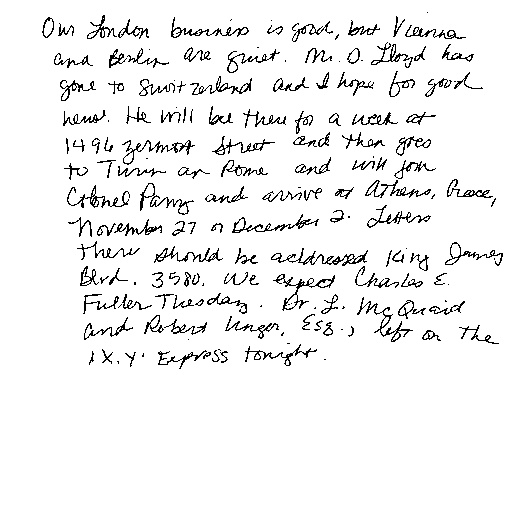 Our London business is good, but Vienna
and Berlin are quiet. Mr. D. Lloyd has
gone to Switzerland and I hope for good
news. He will be there for a week at
1496 Zermott Street and then goes
to Turin an Rome and will join
Colonel Parry and arrive at Athens, Greece,
November 27 or December 2. Letters
there should be addressed King James
Blvd. 3580. We expect Charles E.
Fuller Tuesday. Dr. L. McQuaid
and Robert Unger, Esq., left on the
X.Y. Express tonight.